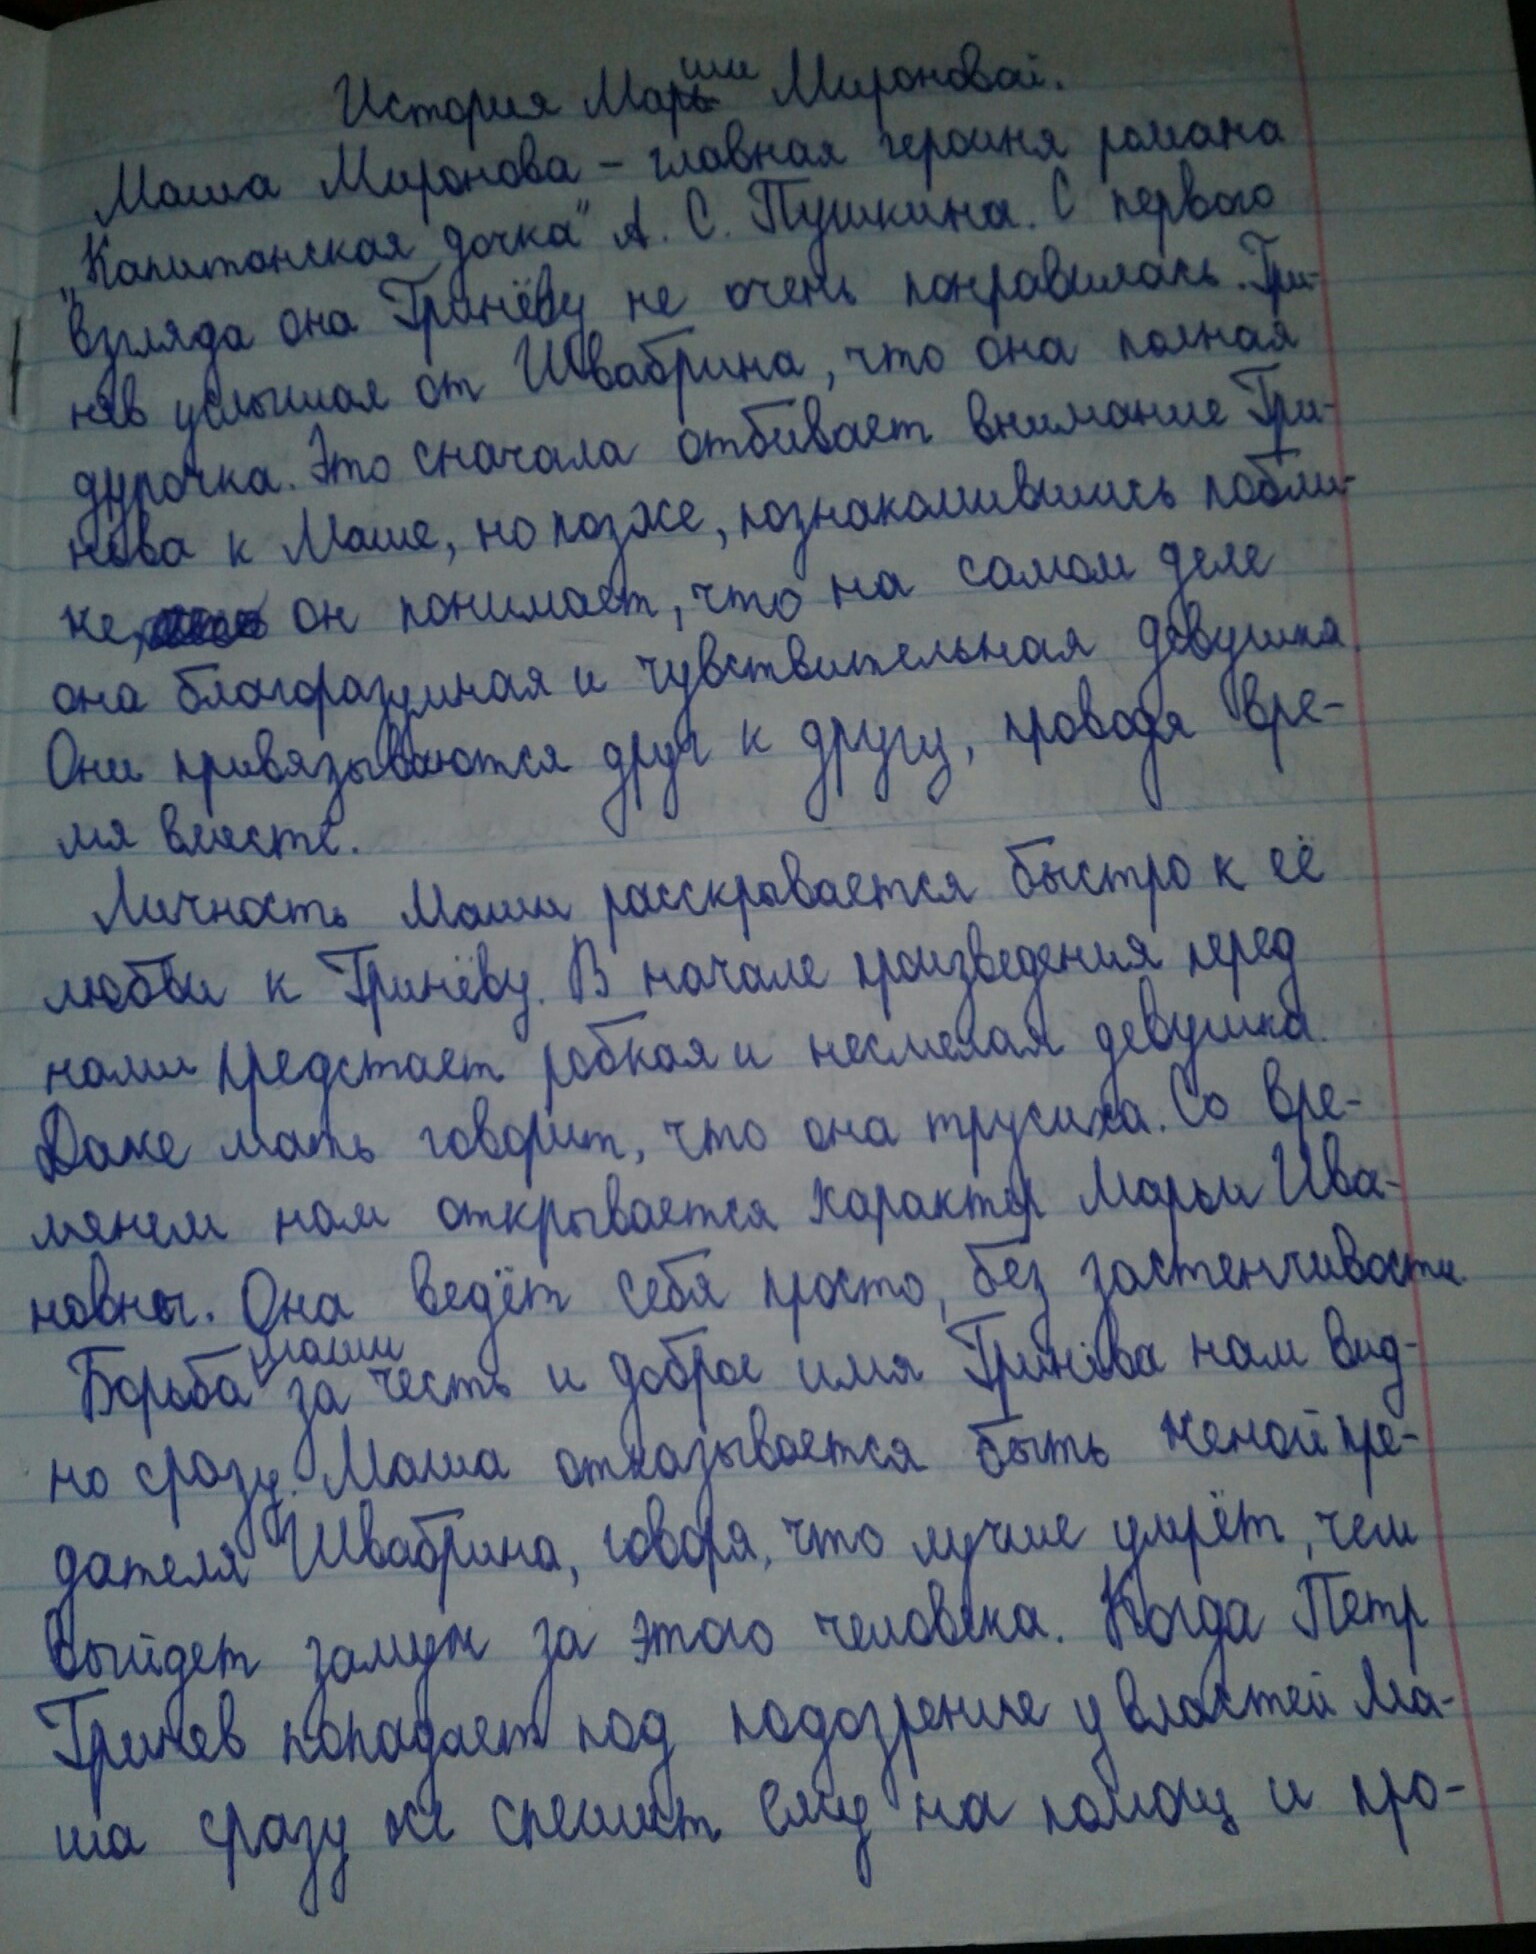 История Марши Мироновой.
Маша Миронова – главная героиня романа
„Капитанская дочка" А. С. Пушкина. С первого
взгляда она Гринёву не очень понравилась. Гри-
нёв услышал от Швабрина, что она полная
дурочка. Это сначала отбивает внимание Гри-
нёва к Маше, но позже, познакомившись побли-
же, он понимает, что на самом деле
она благоразумная и чувствительная девушка.
Они привязываются друг к другу, проводя вре-
мя вместе.
Личность Маши расскрывается быстро к её
любви к Гринёву. В начале произведения перед
нами предстает робкая и несмелая девушка.
Даже мать говорит, что она трусиха. Со вре-
менем нам открывается характер Марьи Ива-
новны. Она ведёт себя просто, без застенчивости.
Борьба Маши за честь и доброе имя Гринёва нам вид-
но сразу. Маша отказывается быть женой пре-
дателя Швабрина, говоря, что лучше умрёт, чем
выйдет замуж за этого человека. Когда Петр
Гринев попадает под подозрение у властей Ма-
ша сразу же спешит ему на помощ и про-